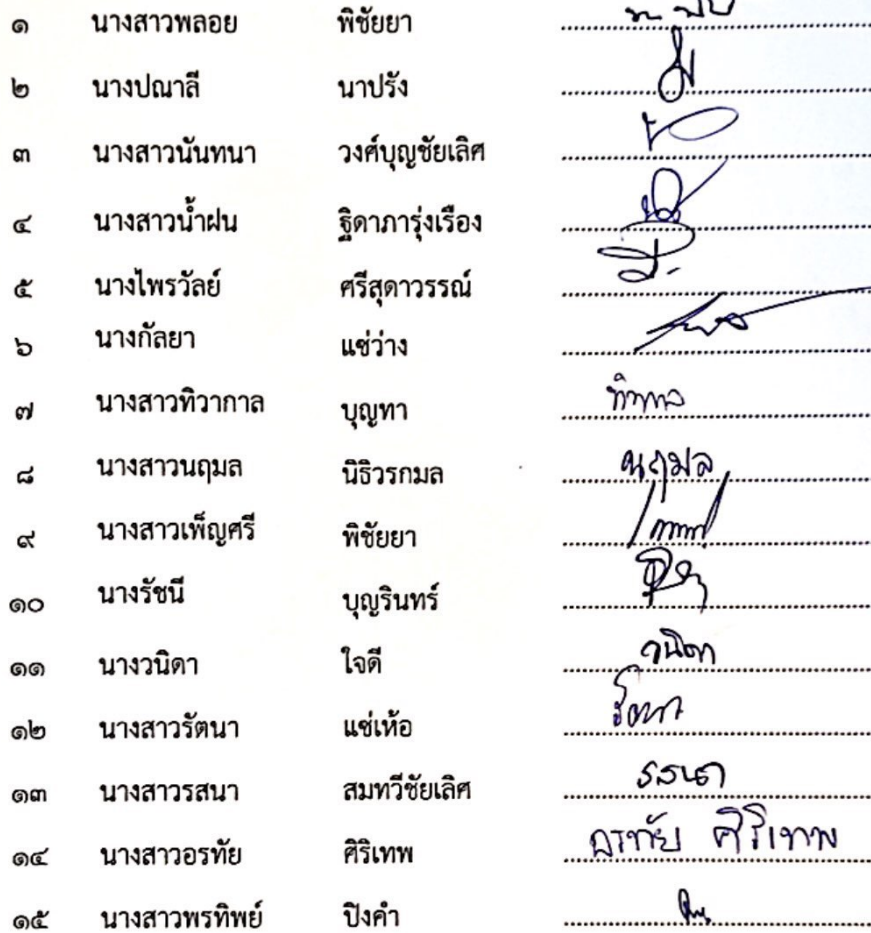 ๑ นางสาวพลอย พิชัยยา
๒ นางปณาลี นาปรัง
๓ นางสาวนันทนา วงศ์บุญชัยเลิศ
๔ นางสาวน้ำฝน ฐิดาภารุ่งเรือง
๕ นางไพรวัลย์ ศรีสุดาวรรณ์
๖ นางกัลยา แซ่ว่าง
๗ นางสาวทิวากาล บุญทา
๘ นางสาวนฤมล นิธิวรกมล นฤมล
๙ นางสาวเพ็ญศรี พิชัยยา
๑๐ นางรัชนี บุญรินทร์
๑๑ นางวนิดา ใจดี วนิดา
๑๒ นางสาวรัตนา แซ่เห้อ รัตนา
๑๓ นางสาวรสนา สมทวีชัยเลิศ รสนา
๑๔ นางสาวอรทัย ศิริเทพ อรทัย ศิริเทพ
๑๕ นางสาวพรทิพย์ ปิงคำ